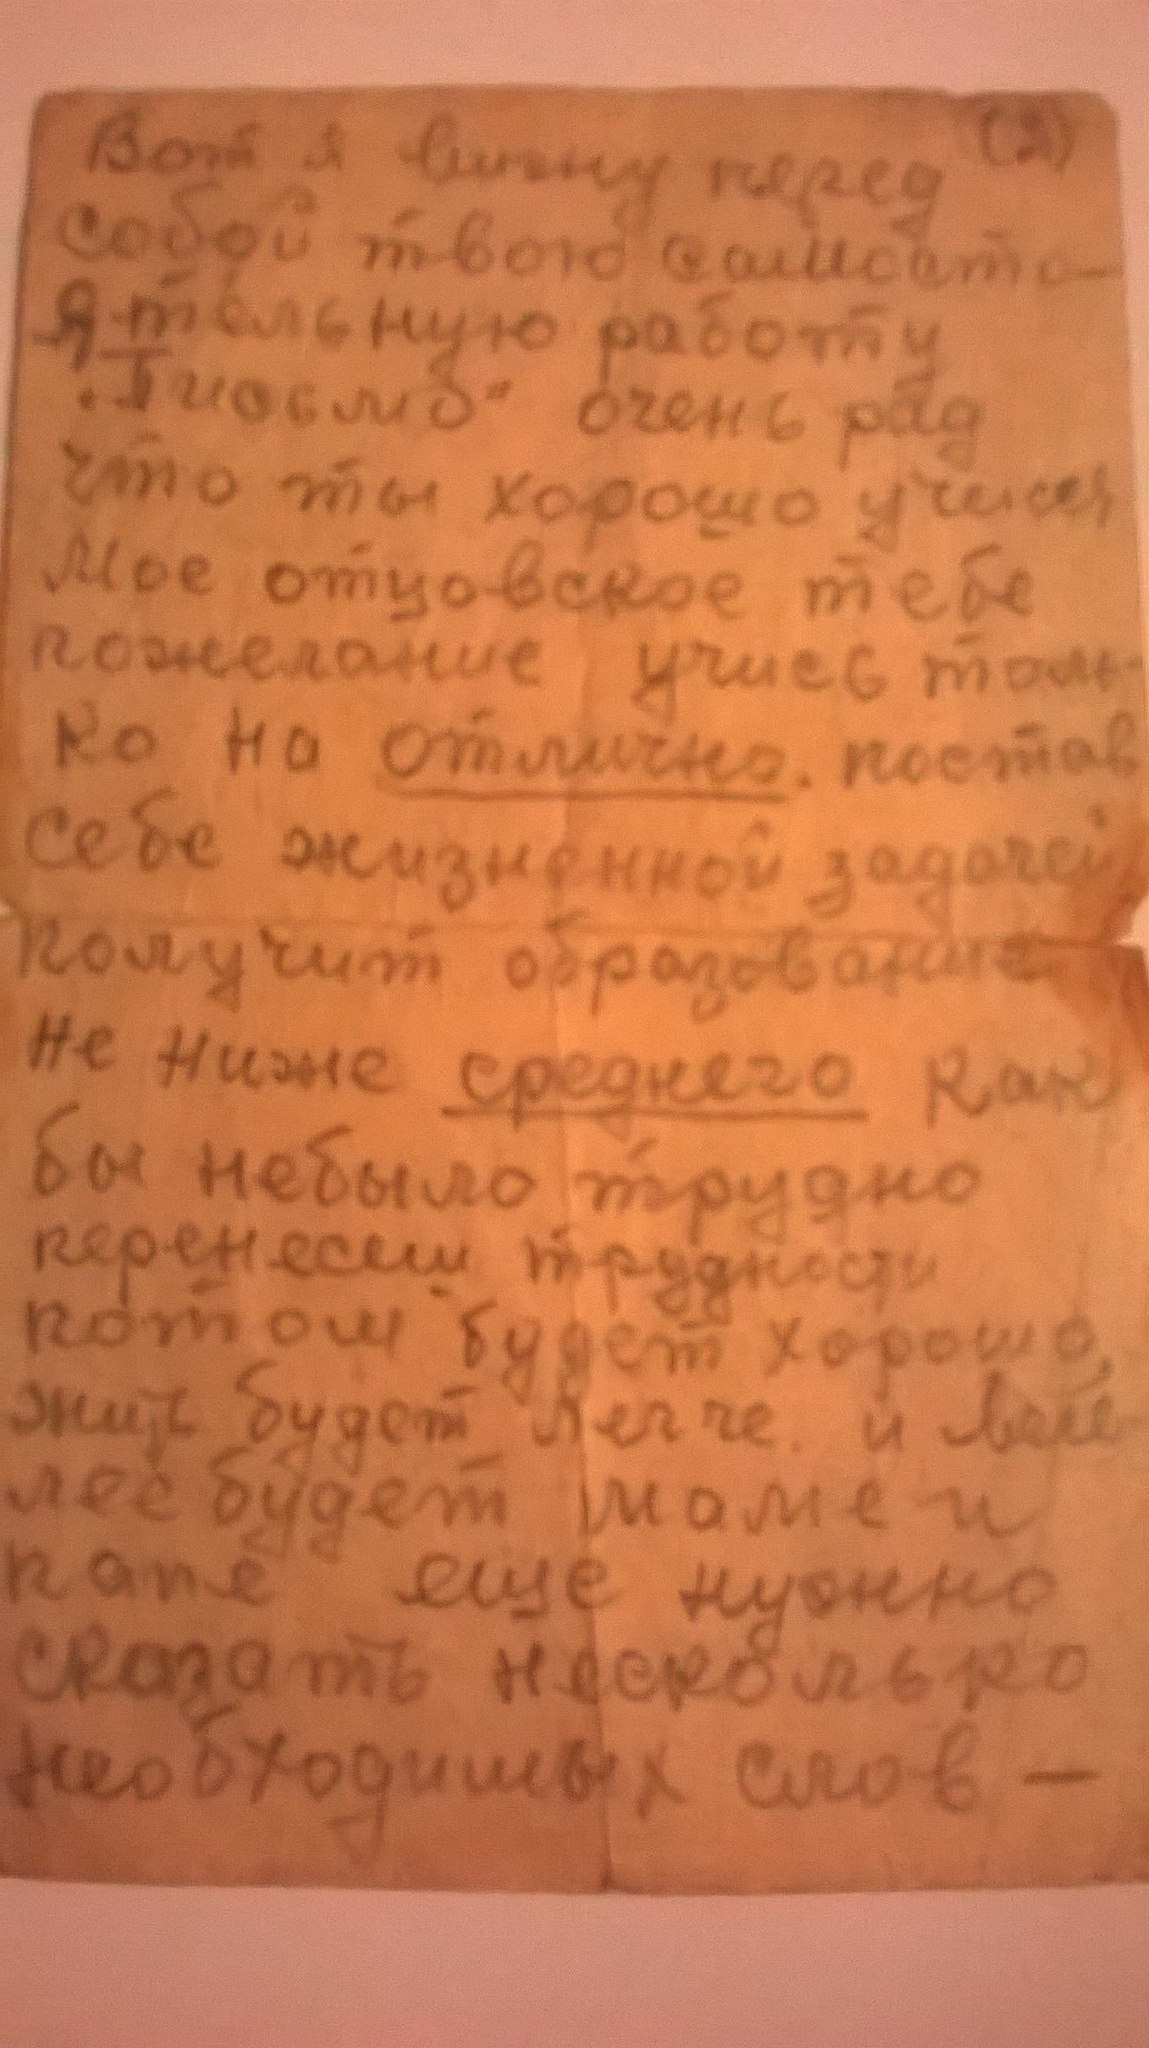 (2)
Вот я вижу перед
собой твою самосто-
ятельную работу
очень рад
что ты хорошо учишся
Мое отцовское тебе
пожелание учись толь-
ко на отлично. поставь
себе жизненной задачей
получит образование
не ниже среднего как
бы небыло трудно
перенесеш трудности
потом будет хорошо,
жить будет легче. и весе-
лее будет маме и
папе еще нужно
сказать несколько
необходимых слов —